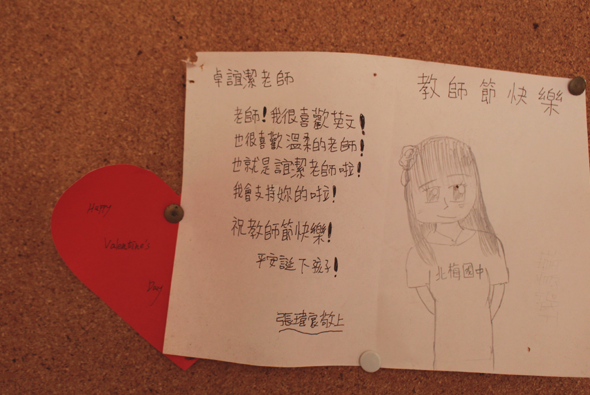 卓誼潔老師
老師！我很喜歡英文！
也很喜歡溫柔的老師！
也就是誼潔老師啦！
我會支持妳的啦！
祝教師節快樂！
平安誕下孩子！
張瑋宸敬上
教師節快樂
北梅國中
Happy
Valentine's
Day